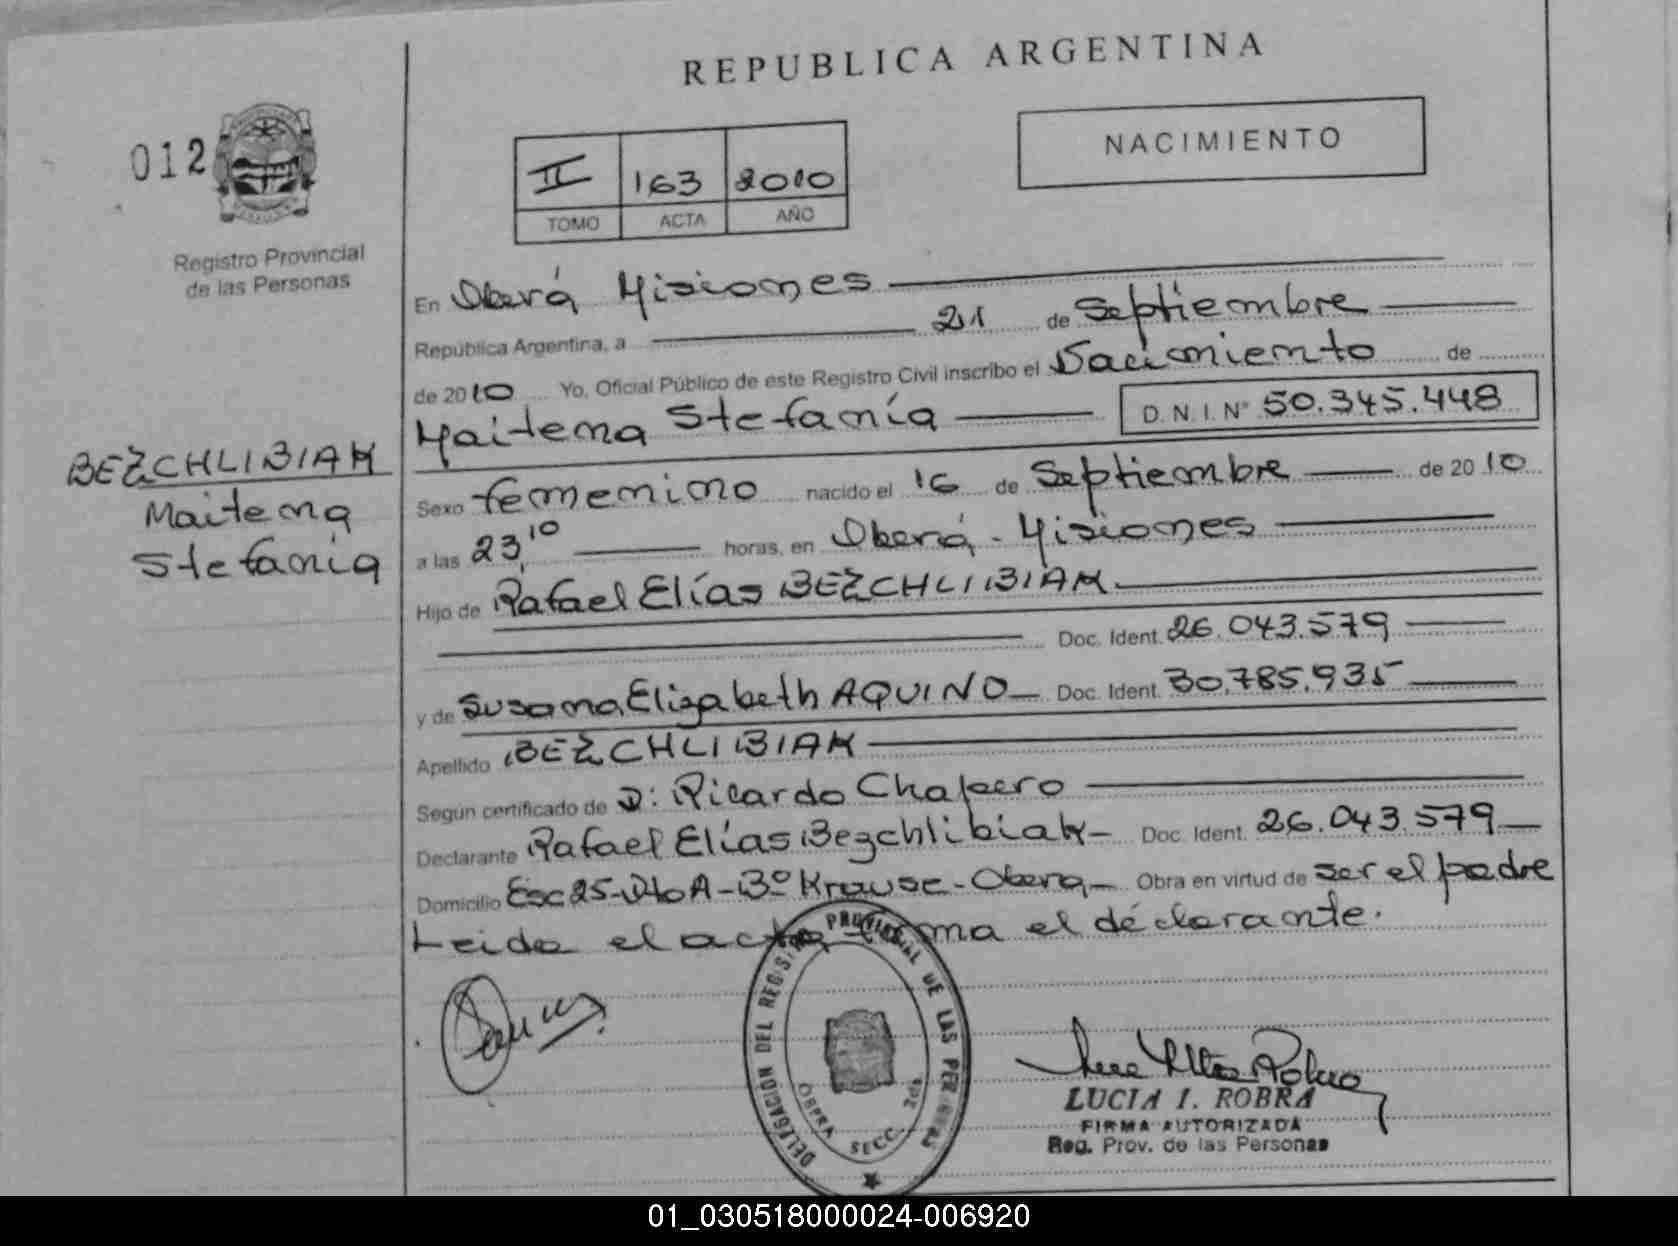 REPUBLICA ARGENTINA
012
NACIMIENTO
II 163 2010
TOMO ACTA AÑO
Registro Provincial
de las Personas
En Oberá Misiones
República Argentina, a 21 de Septiembre
de 2010 Yo, Oficial Público de este Registro Civil inscribo el Nacimiento de
Maitena Stefanía D.N.I.Nº 50.345.448
BEZCHLIBIAK
Maitena
Stefanía
Sexo femenino nacido el 16 de Septiembre de 2010
a las 23,10 horas, en Oberá - Misiones
Hijo de Rafael Elías BEZCHLIBIAK
Doc. Ident. 26.043.579
y de Susana Elizabeth AQUINO Doc. Ident. 30.785.935
Apellido BEZCHLIBIAK
Según certificado de D: Ricardo
Declarante Rafael Elías Bezchlibiak Doc. Ident. 26.043.579
Domicilio Esc 25-Dto A-Bº Krause-Obera Obra en virtud de ser el padre
Leida el acta firma el declarante.
DELEGACION DEL REGISTRO PROVINCIAL DE LAS PERSONAS
SECC. 2da
LUCIA I. ROBRA
FIRMA AUTORIZADA
Reg. Prov. de las Personas
01_030518000024-006920